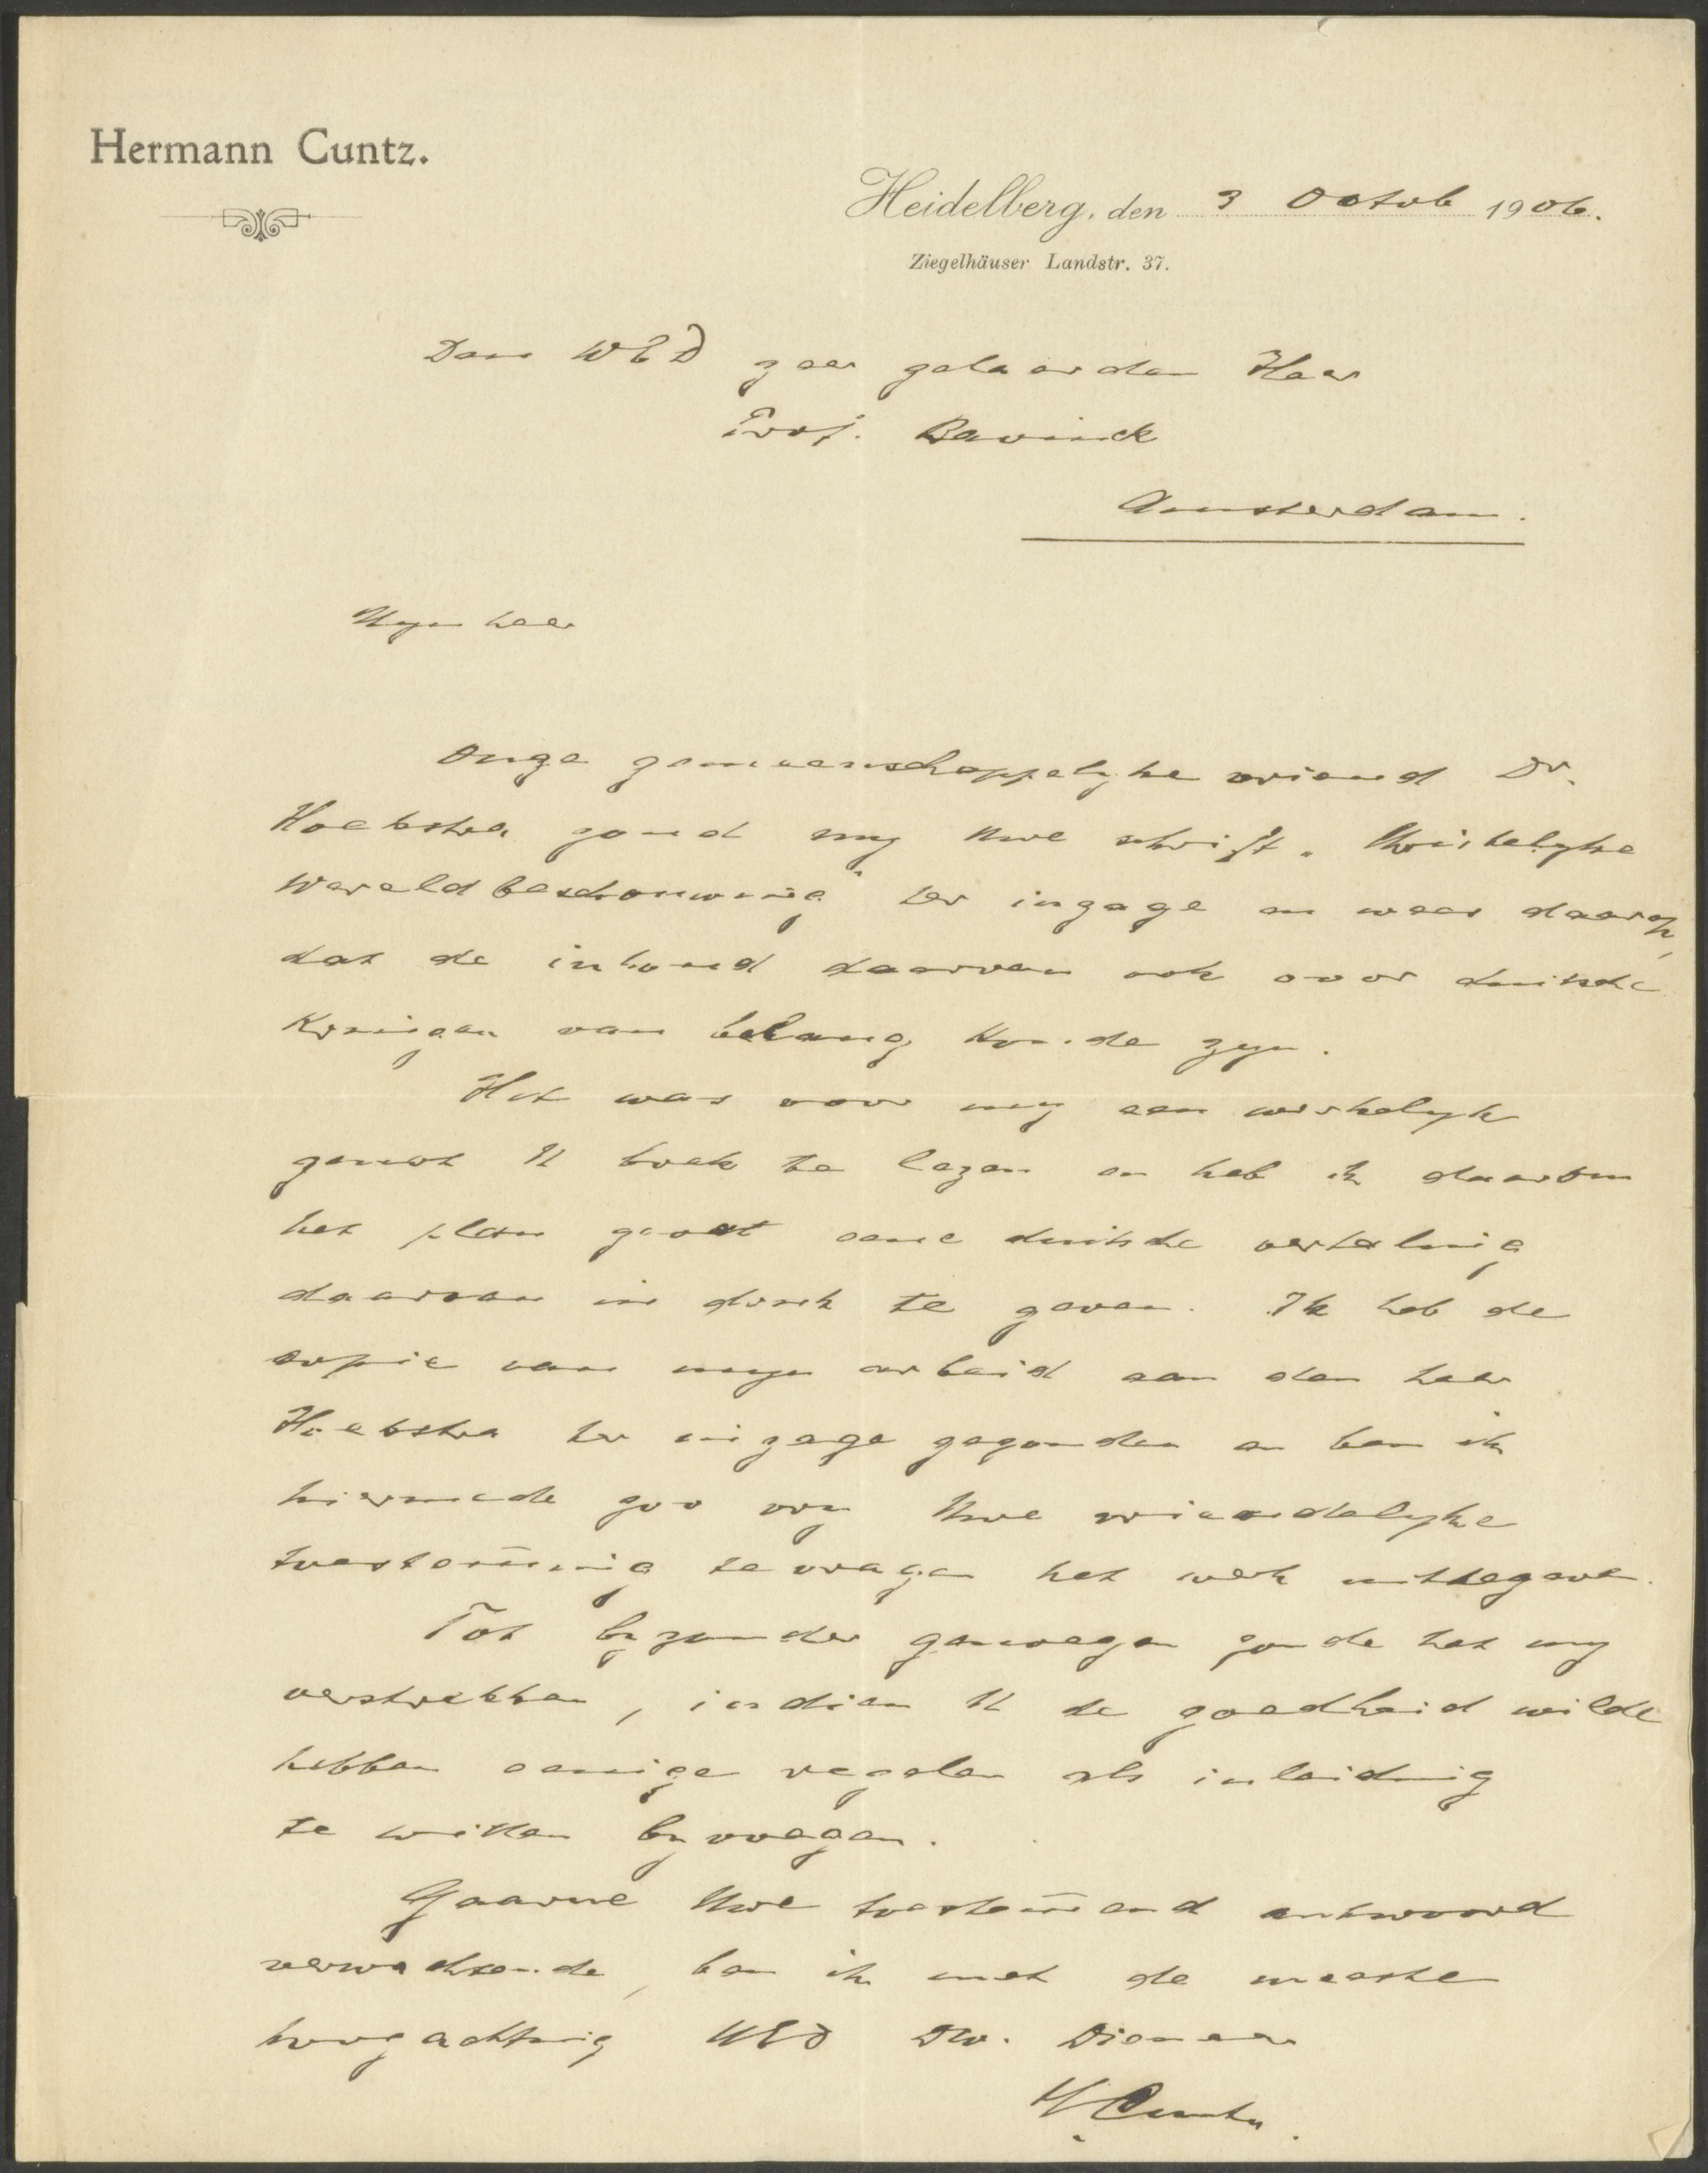 Hermann Cuntz.
Heidelberg, den 3 Octob 1906.
Ziegelhäuser Landstr. 37.
Den WED zeer geleerden Heer
Prof. Bavinck
Amsterdam.
Myn heer
Onze gemeenschappelyke vriend Dr.
Hoekstra zond my Uwe schrift „Christelyke
Wereldbeschouwing" ter inzage en wees daarop,
dat de inhoud daarvan ook voor duitsche
Kringen van belang konde zyn.
Het was voor my een werkelyk
genot U boek te lezen en heb ik daarom
het plan gevat eene duitsche vertaling
daarvan in druk te geven. Ik heb de
copie van myn arbeid aan den heer
Hoekstra ter inzage gezonden en ben ik
hiermede zoo vry Uwe vriendelyke
toestem̄ing te vragen het werk uittegeven.
Tot byzonder genoegen zoude het my
verstrekken, indien U de goedheid wilde
hebben eenige regelen als inleiding
te willen byvoegen.
Gaarne Uwe toestem̄end antwoord
verwachtende, ben ik met de meeste
hoogachting UEd Dw. Dienaar
H Cuntz.